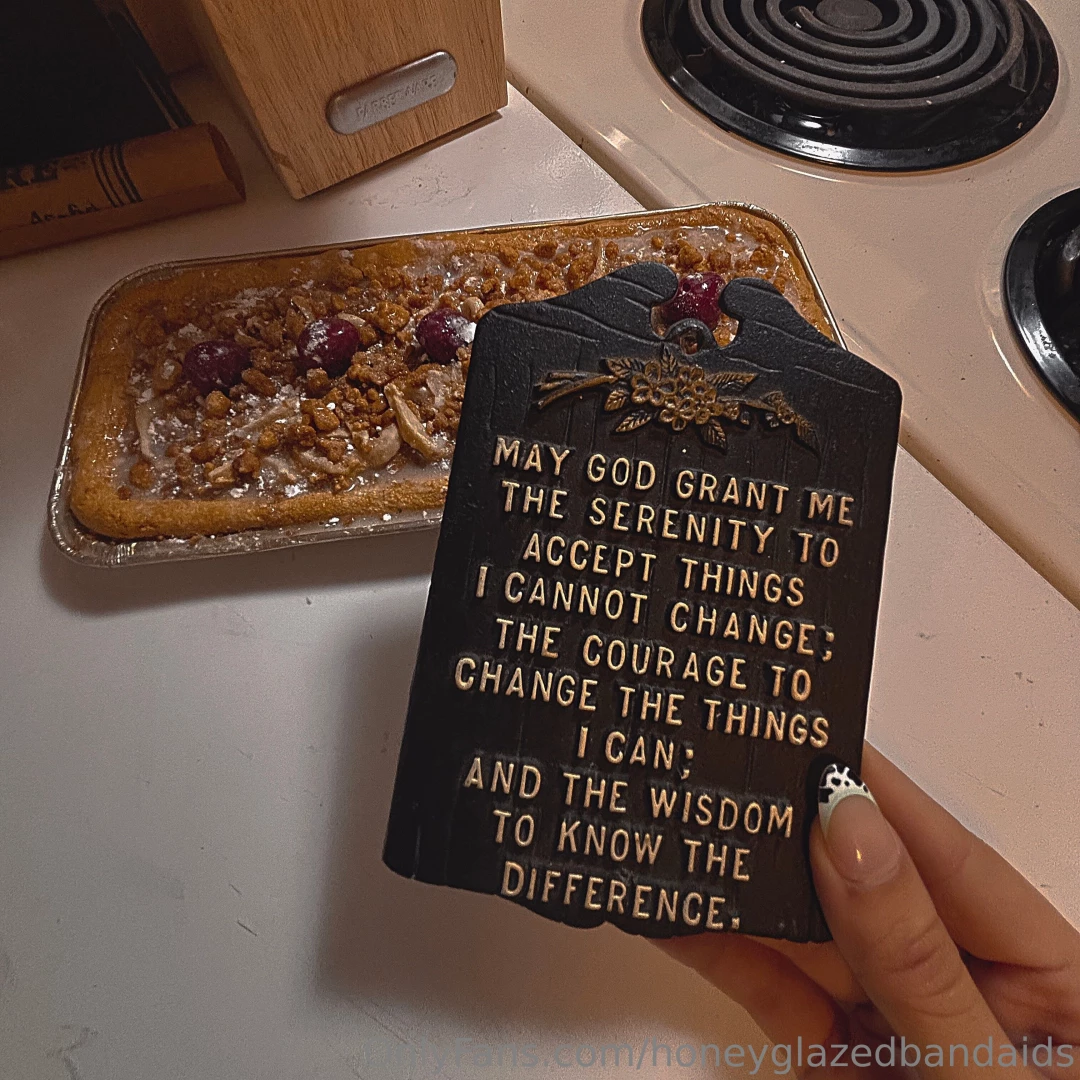 FARBERWARE
MAY GOD GRANT ME
THE SERENITY TO
ACCEPT THINGS
I CANNOT CHANGE;
THE COURAGE TO
CHANGE THE THINGS
I CAN;
AND THE WISDOM
TO KNOW THE
DIFFERENCE.
onlyfans.com/honeyglazedbandaids